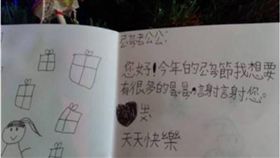 老公公:
您好!今年的節我想要
有很多的謝謝您。
天天快樂